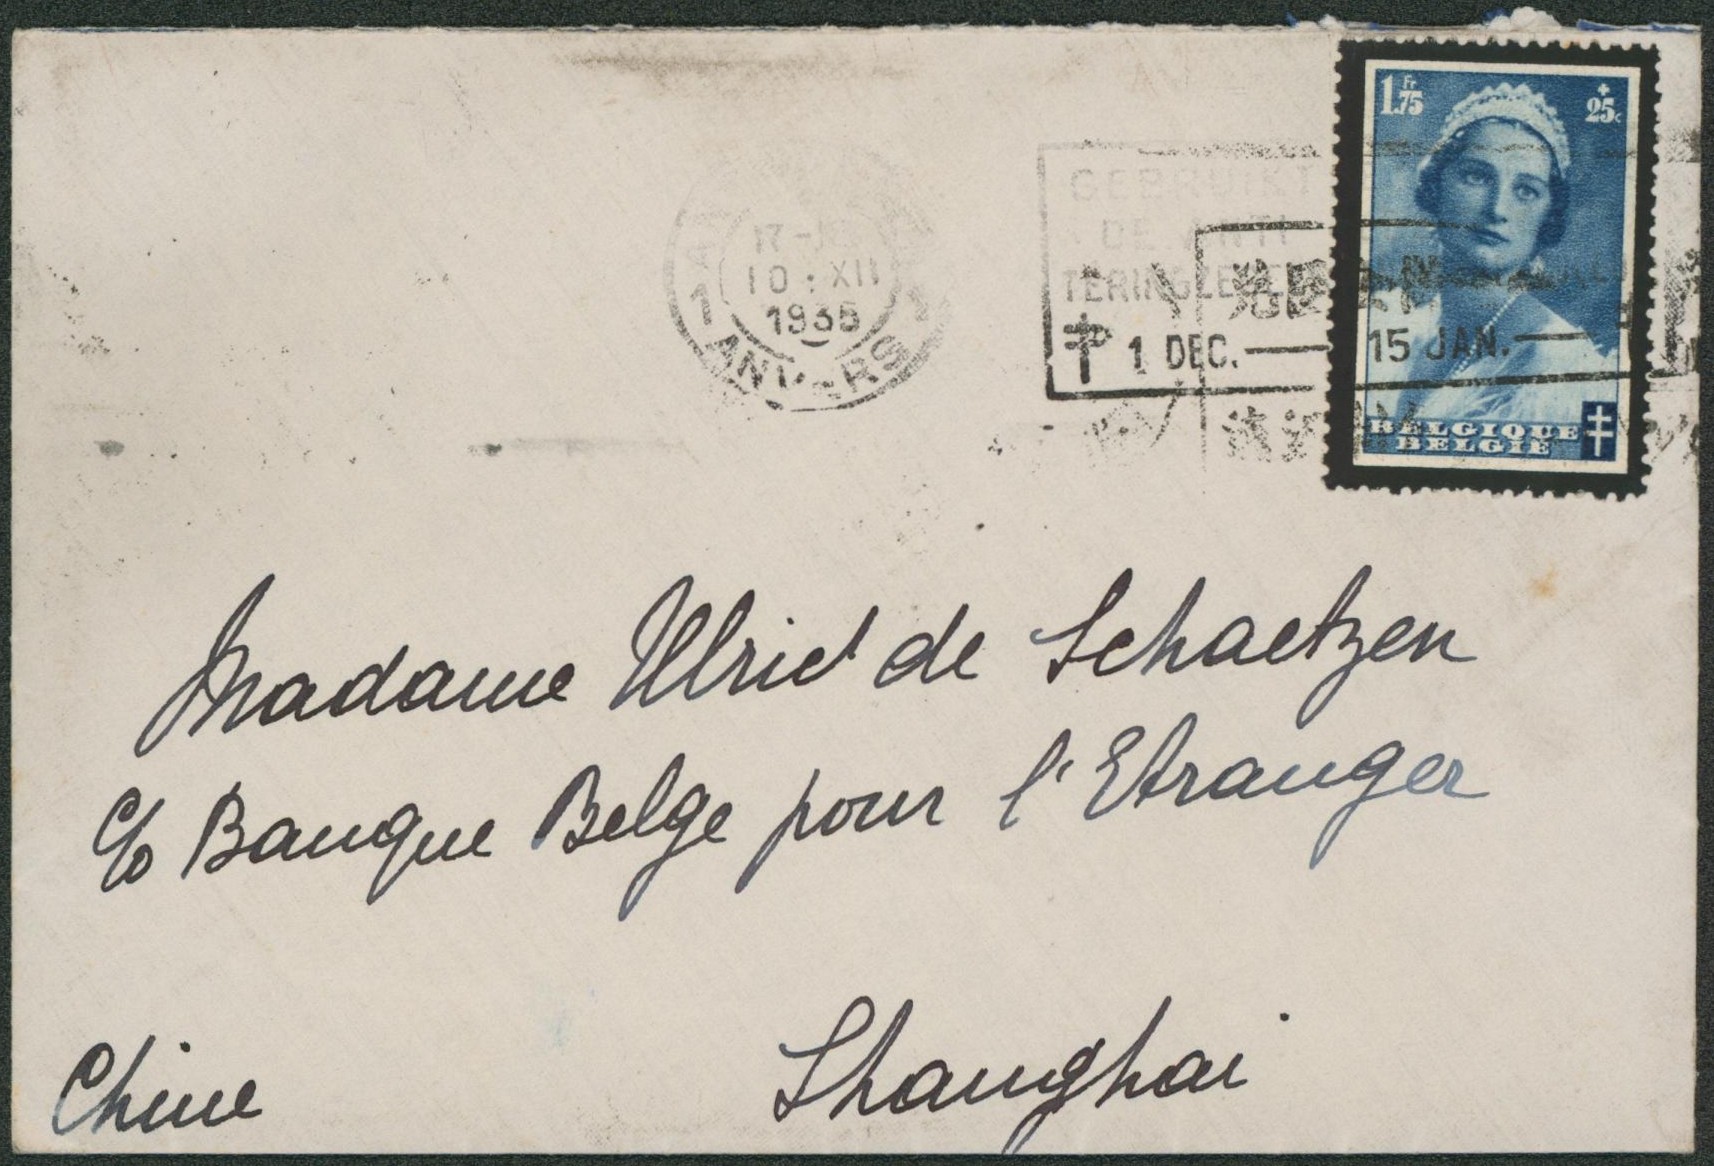 1 Fr 75
+ 25c
BELGIQUE
BELGIË
17-
10 · XII
1935
1 1
ANVERS
GEBRUIKT
DE ANTI
1 DEC. — 15 JAN. —
Madame Ulric de Schaetzen
c/o Banque Belge pour l'Etranger
Shanghai
Chine